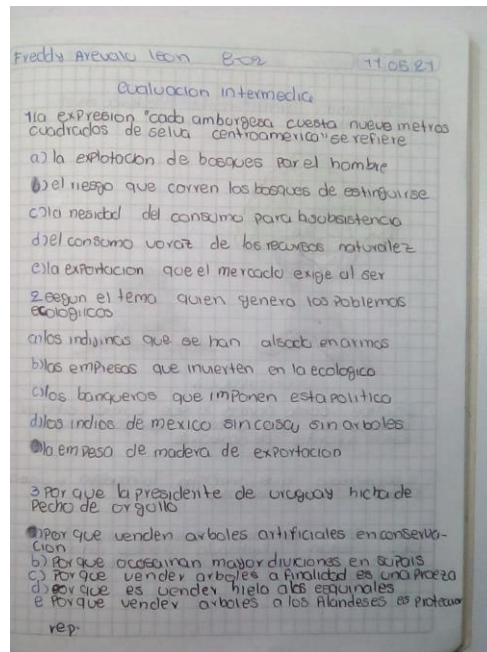 Freddy Arevalo leon 8-02 11 05 21
evaluacion intermedia
1 la expresion "cada amburgesa cuesta nueve metros
cuadrados de selva centroamerica" se refiere
a) la explotacion de bosques por el hombre
b) el riesgo que corren los bosques de estinguirse
c) la nesidad del consumo para la subsistencia
d) el consumo voraz de los recursos naturalez
e) la exportacion que el mercado exige al ser
2 segun el tema quien genera los poblemas
ecologiicos
a) los indijinas que se han alsado en armas
b) las empresas que invierten en la ecologico
c) los banqueros que imponen esta politico
d) los indios de mexico sin casa y sin arboles
la empesa de madera de exportacion
3 Por que la presidente de uruguay hicha de
pecho de orgullo
Por que venden arboles artificiales en conserva-
cion
b) Porque mayor en su pais
c) Porque vender arboles a finalidad es una proeza
d) porque es vender hielo a los esquinales
e Porque vender arboles a los Alandeses es
rep.